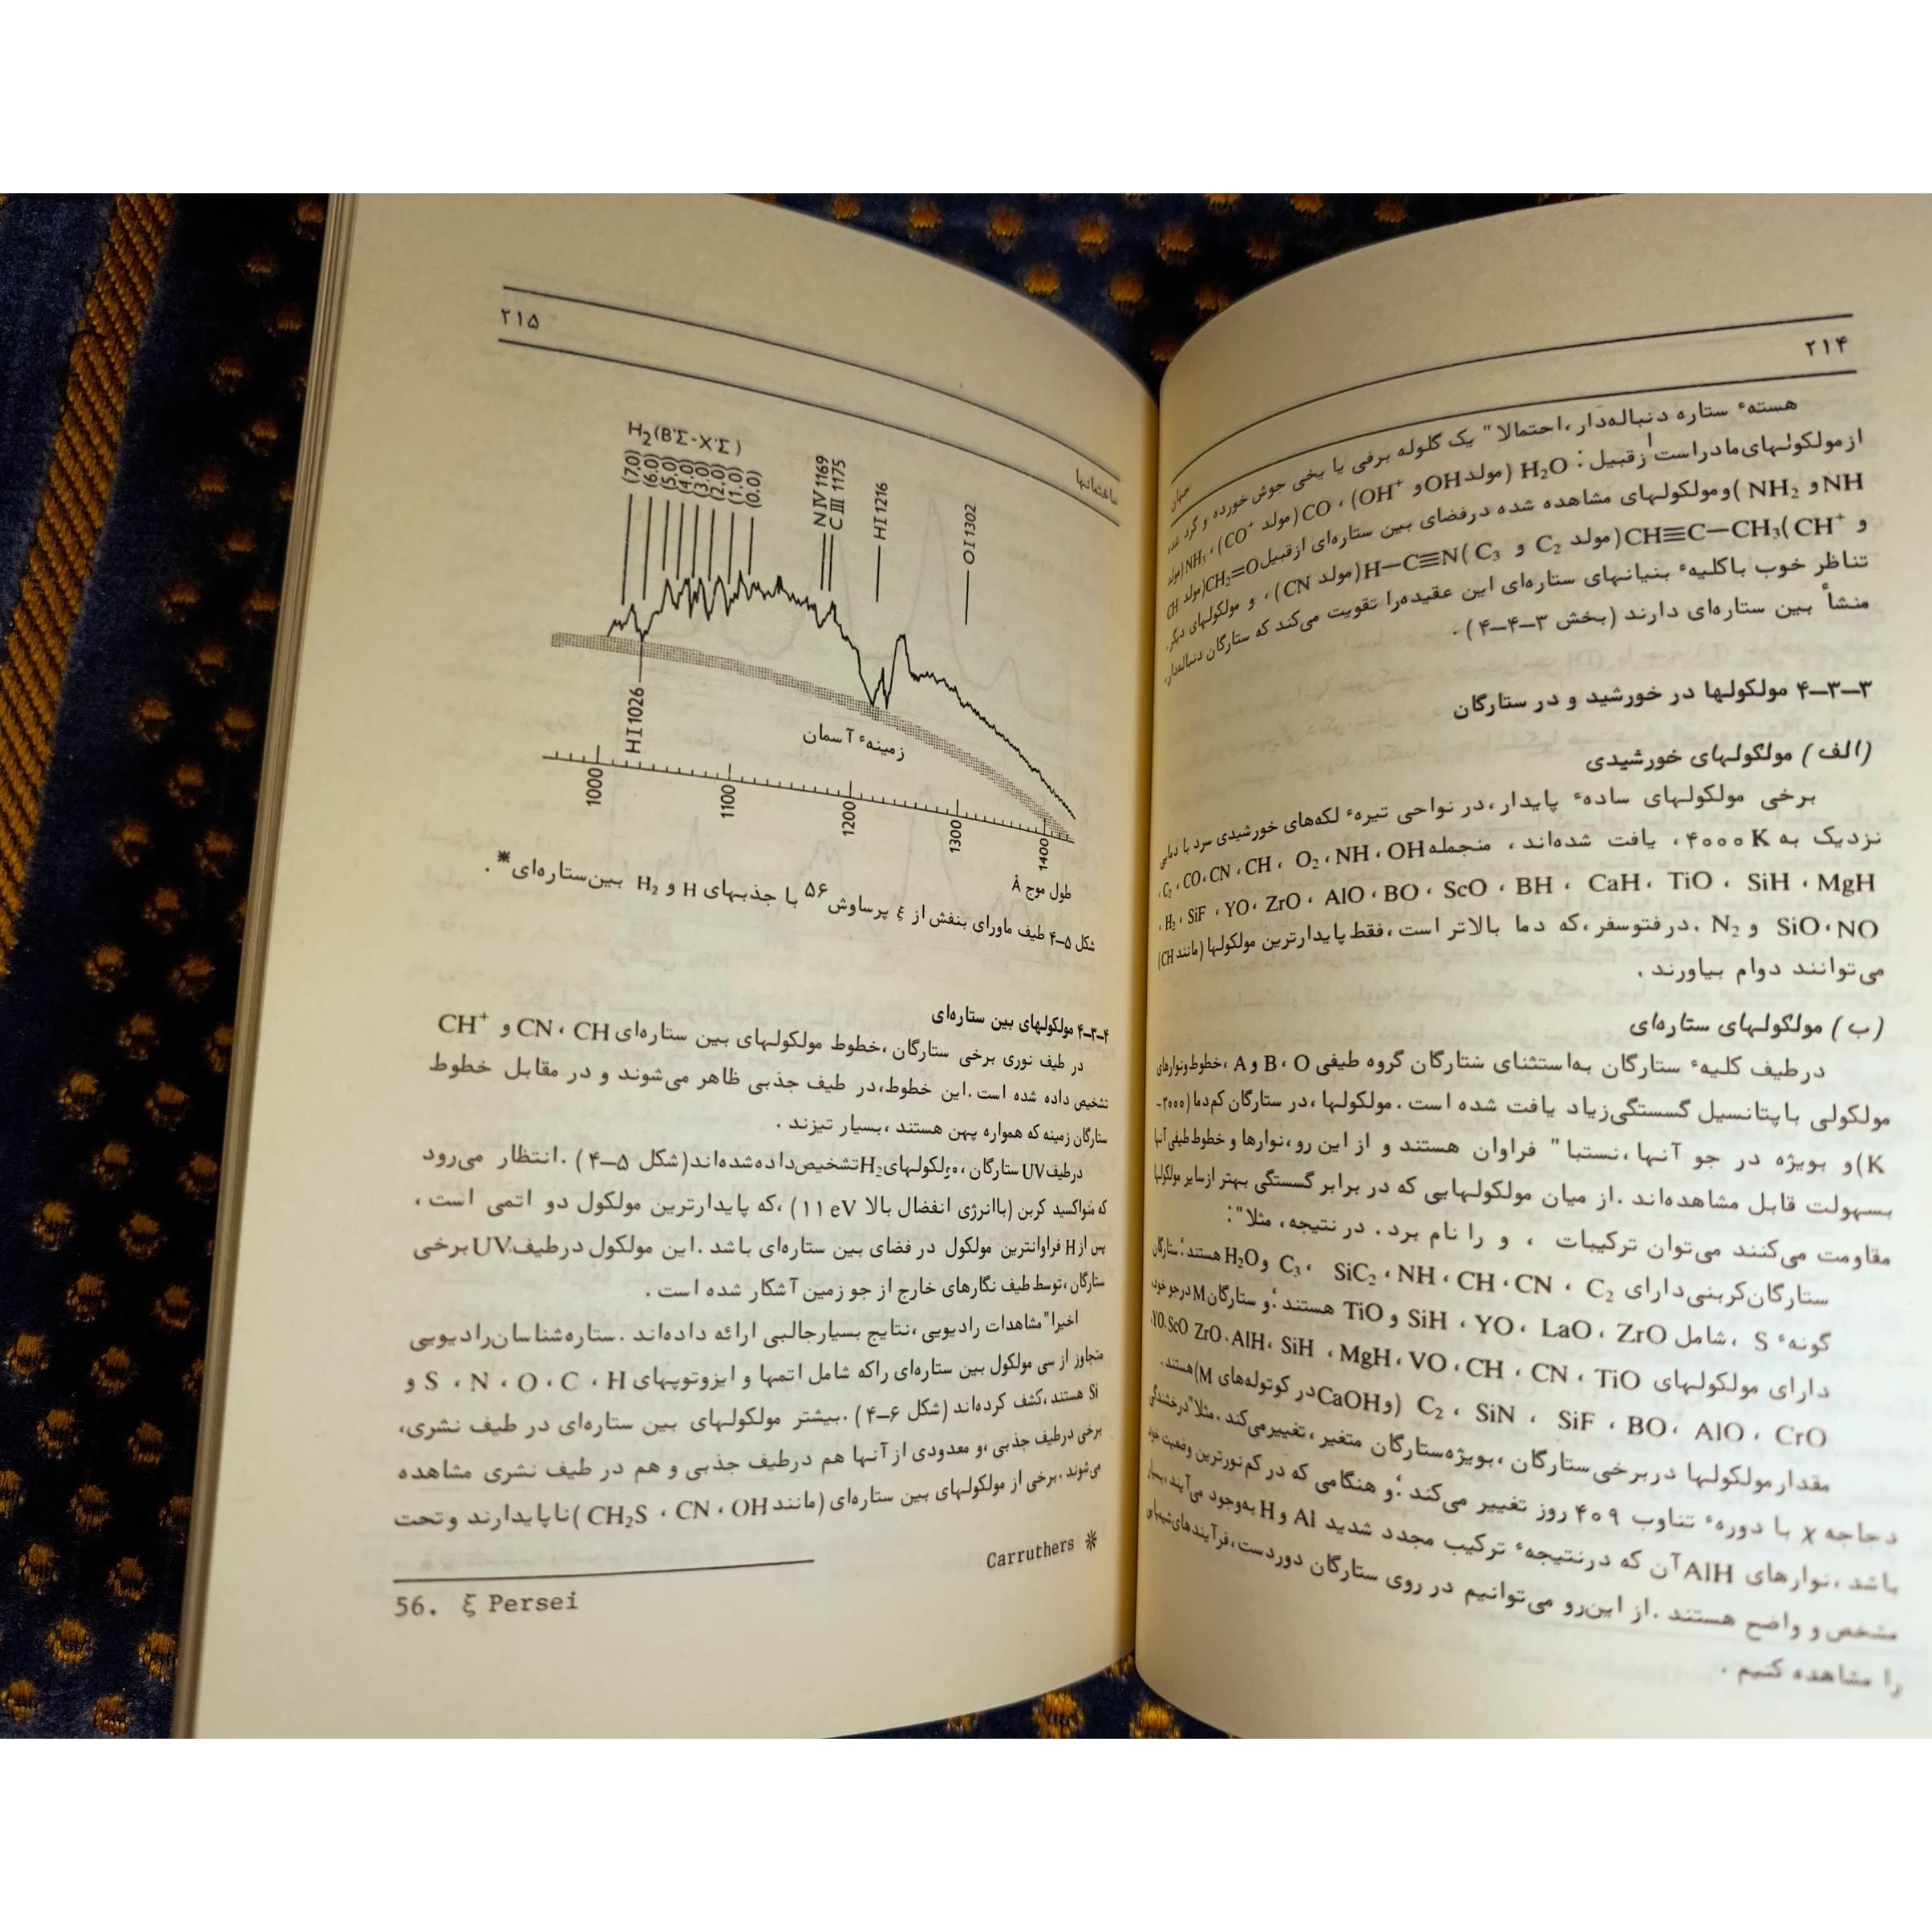 ۲۱۴
جهان
هستهٔ ستاره دنباله‌دار، احتمالا" یک گلوله برفی یا یخی جوش خورده و گرد شده
از مولکولهای مادر است از قبیل: H₂O (مولد OH و OH⁺)، CO (مولد CO⁺)، NH₃ (مولد
NH و NH₂) و مولکولهای مشاهده شده در فضای بین ستاره‌ای از قبیل CH₂=O (مولد CH
و CH⁺) CH≡C—CH₃ (مولد C₂ و C₃) H—C≡N (مولد CN)، و مولکولهای دیگر.
تناظر خوب با کلیهٔ بنیانهای ستاره‌ای این عقیده را تقویت می‌کند که ستارگان دنباله‌دار،
منشأ بین ستاره‌ای دارند (بخش ۳–۴–۴).
۳–۳–۴ مولکولها در خورشید و در ستارگان
(الف) مولکولهای خورشیدی
برخی مولکولهای سادهٔ پایدار، در نواحی تیرهٔ لکه‌های خورشیدی سرد با دمایی
نزدیک به ۴۰۰۰ K، یافت شده‌اند، منجمله OH، NH، O₂، CH، CN، CO، C₂،
MgH، SiH، TiO، CaH، BH، ScO، BO، AlO، ZrO، YO، SiF، H₂،
NO، SiO و N₂. در فتوسفر، که دما بالاتر است، فقط پایدارترین مولکولها (مانند CH)
می‌توانند دوام بیاورند.
(ب) مولکولهای ستاره‌ای
در طیف کلیهٔ ستارگان به‌استثنای ستارگان گروه طیفی O، B و A، خطوط و نوارهای
مولکولی با پتانسیل گسستگی زیاد یافت شده است. مولکولها، در ستارگان کم‌دما (۲۰۰۰–
K) و بویژه در جو آنها، نستبا" فراوان هستند و از این رو، نوارها و خطوط طیفی آنها
بسهولت قابل مشاهده‌اند. از میان مولکولهایی که در برابر گسستگی بهتر از سایر مولکولها
مقاومت می‌کنند می‌توان ترکیبات ، و را نام برد. در نتیجه، مثلا":
ستارگان کربنی دارای C₂، CN، CH، NH، SiC₂، C₃ و H₂O هستند؛ ستارگان
گونهٔ S، شامل ZrO، LaO، YO، SiH و TiO هستند؛ و ستارگان M در جو خود،
دارای مولکولهای TiO، CN، CH، VO، MgH، SiH، AlH، ZrO، ScO، YO،
CrO، AlO، BO، SiF، SiN، C₂ (و CaOH در کوتوله‌های M) هستند.
مقدار مولکولها در برخی ستارگان، بویژه ستارگان متغیر، تغییر می‌کند. مثلا" درخشندگی
دجاجه χ با دورهٔ تناوب ۴۰۹ روز تغییر می‌کند؛ و هنگامی که در کم نورترین وضعیت خود
باشد، نوارهای AlH آن که در نتیجهٔ ترکیب مجدد شدید Al و H به‌وجود می‌آیند، بسیار
مشخص و واضح هستند. از این‌رو می‌توانیم در روی ستارگان دوردست، فرآیندهای شیمیایی
را مشاهده کنیم.
۲۱۵
ساختمانها
H₂(B'Σ-X'Σ)
(7,0)
(6,0)
(5,0)
(4,0)
(3,0)
(2,0)
(1,0)
(0,0)
N IV 1169
C III 1175
HI 1216
OI 1302
HI 1026
زمینهٔ آسمان
1000
1100
1200
1300
1400
طول موج Å
شکل ۵–۴ طیف ماورای بنفش از ξ پرساوش ۵۶ با جذبهای H و H₂ بین‌ستاره‌ای*.
۴–۳–۴ مولکولهای بین ستاره‌ای
در طیف نوری برخی ستارگان، خطوط مولکولهای بین ستاره‌ای CH، CN و CH⁺
تشخیص داده شده است. این خطوط، در طیف جذبی ظاهر می‌شوند و در مقابل خطوط
ستارگان زمینه که همواره پهن هستند، بسیار تیزند.
در طیف UV ستارگان، مولکولهای H₂ تشخیص داده شده‌اند (شکل ۵–۴). انتظار می‌رود
که منواکسید کربن (باانرژی انفضال بالا ۱۱ eV)، که پایدارترین مولکول دو اتمی است،
پس از H فراوانترین مولکول در فضای بین ستاره‌ای باشد. این مولکول در طیف UV برخی
ستارگان، توسط طیف نگارهای خارج از جو زمین آشکار شده است.
اخیرا" مشاهدات رادیویی، نتایج بسیار جالبی ارائه داده‌اند. ستاره‌شناسان رادیویی
متجاوز از سی مولکول بین ستاره‌ای را که شامل اتمها و ایزوتوپهای H، C، O، N، S و
Si هستند، کشف کرده‌اند (شکل ۶–۴). بیشتر مولکولهای بین ستاره‌ای در طیف نشری،
برخی در طیف جذبی، و معدودی از آنها هم در طیف جذبی و هم در طیف نشری مشاهده
می‌شوند. برخی از مولکولهای بین ستاره‌ای (مانند OH، CN، CH₂S) ناپایدارند و تحت
* Carruthers
56. ξ Persei